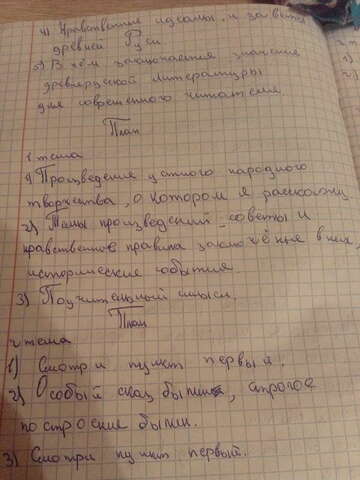 4) Нравственные идеалы и заветы
древней Руси
5) В чём заключается значение
древнерусской литературы
для современного читателя.
План
1 тема
1) Произведение устного народного
творчества, о котором я расскажу
2) Темы произведений, советы и
нравственные правила заключённые в них,
исторические события.
3) Поучительный смысл.
План
2 тема
1) Смотри пункт первый.
2) Особый склад былины, строгое
построение былин.
3) Смотри пункт первый.